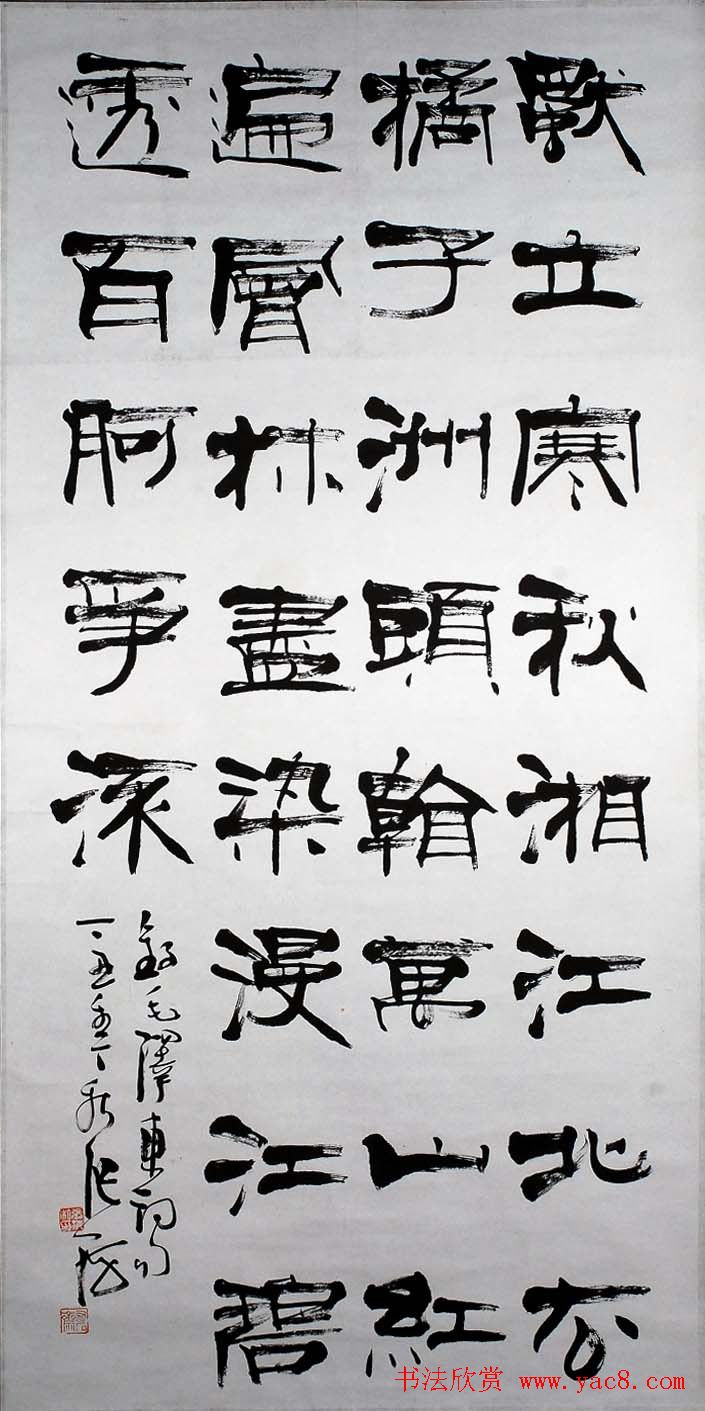 獸立寒秋湘江北去
橘子洲頭看萬山紅
遍層林盡染漫江碧
透百舸爭流
錄毛澤東詞句
秋張海
书法欣赏 www.yac8.com